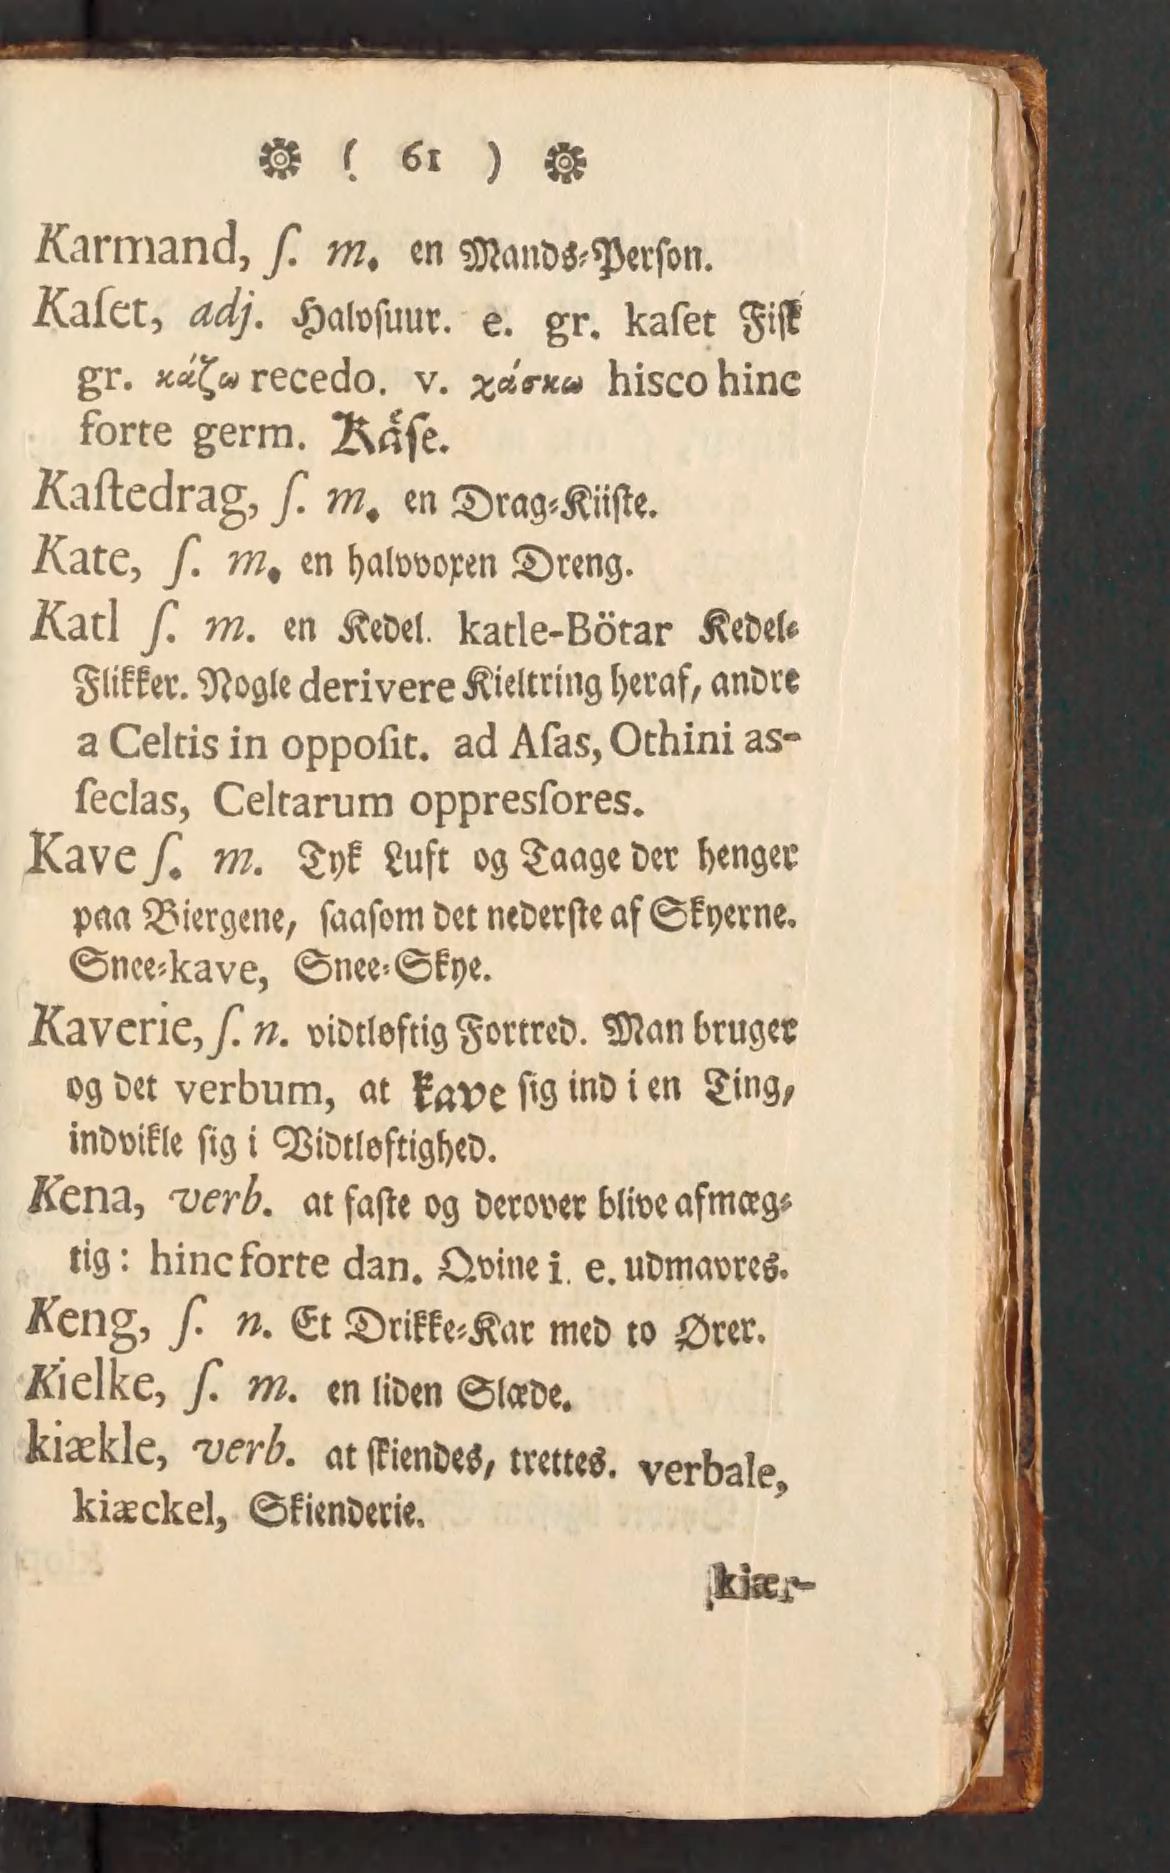 ( 61 )
Karmand, ſ. m. en Mands-Perſon.
Kaſet, adj. Halvſuur. e. gr. kaſet Fiſk
gr. κάζω recedo. v. χάσκω hisco hinc
forte germ. Käſe.
Kaſtedrag, ſ. m. en Drag-Kiiſte.
Kate, ſ. m. en halvvoxen Dreng.
Katl ſ. m. en Kedel. katle-Bötar Kedel-
Flikker. Nogle derivere Kieltring heraf, andre
a Celtis in oppoſit. ad Aſas, Othini as-
ſeclas, Celtarum oppresſores.
Kave ſ. m. Tyk Luft og Taage der henger
paa Biergene, ſaaſom det nederſte af Skyerne.
Snee-kave, Snee-Skye.
Kaverie, ſ. n. vidtløftig Fortred. Man bruger
og det verbum, at kave ſig ind i en Ting,
indvikle ſig i Vidtløftighed.
Kena, verb. at faſte og derover blive afmæg-
tig: hinc forte dan. Qvine i. e. udmavres.
Keng, ſ. n. Et Drikke-Kar med to Ører.
Kielke, ſ. m. en liden Slæde.
kiækle, verb. at ſkiendes, trettes. verbale,
kiæckel, Skienderie.
kiær-